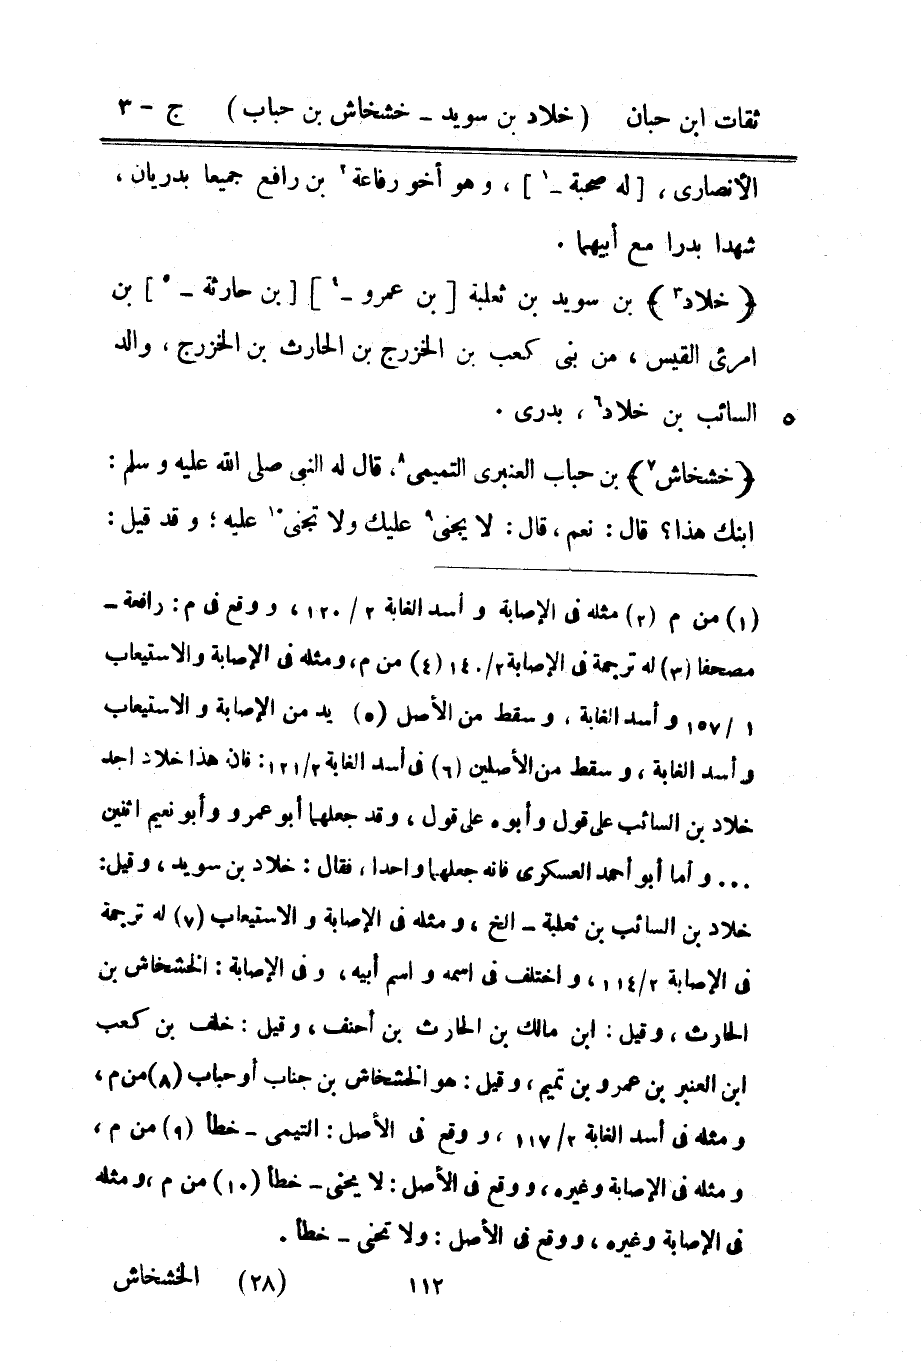 ثقات ابن حبان ( خلاد بن سويد ـ خشخاش بن حباب ) ج - ٣
الأنصارى ، [ له صحبة ـ١ ] ، و هو أخو رفاعة٢ بن رافع جميعا بدريان ،
شهدا بدرا مع أبيهما .
﴿ خلاد٣ ﴾ بن سويد بن ثعلبة [ بن عمرو ـ٤ ] [ بن حارثة ـ ٥ ] بن
امرئ القيس ، من بنى كعب بن الخزرج بن الحارث بن الخزرج ، والد
السائب بن خلاد٦ ، بدرى . ٥
﴿ خشخاش٧ ﴾ بن حباب العنبرى التميمى٨، قال له النبى صلى الله عليه و سلم :
ابنك هذا؟ قال : نعم ، قال : لا يجنى٩ عليك ولا تجنى١٠ عليه ؛ و قد قيل :
(١) من م (٢) مثله فى الإصابة و أسد الغابة ٢ / ١٢٠ ، و وقع فى م : رافعة ـ
مصحفا (٣) له ترجمة فى الإصابة ٢/ ١٤٠ (٤) من م، و مثله فى الإصابة والاستيعاب
١ / ١٥٧ و أسد الغابة ، و سقط من الأصل (٥) يد من الإصابة و الاستيعاب
و أسد الغابة ، و سقط من الأصلين (٦) فى أسد الغابة ٢/ ١٢١ : فان هذا خلاد اجد
خلاد بن السائب على قول و أبوه على قول ، و قد جعلهما أبو عمرو و أبو نعيم اثنين
... و أما أبو أحمد العسكرى فانه جعلهما واحدا ، فقال : خلاد بن سويد ، و قيل :
خلاد بن السائب بن ثعلبة ـ الخ ، و مثله فى الإصابة و الاستيعاب (٧) له ترجمة
فى الإصابة ٢/ ١١٤ ، و اختلف فى اسمه و اسم أبيه ، و فى الإصابة : الخشخاش بن
الحارث ، و قيل : ابن مالك بن الحارث بن أحنف ، و قيل : خلف بن كعب
ابن العنبر بن عمرو بن تميم ، و قيل : هو الخشخاش بن جناب أو حباب (٨) من م ،
و مثله فى أسد الغابة ٢/ ١١٧ ، و وقع فى الأصل : التيمى ـ خطأ (٩) من م ،
و مثله فى الإصابة و غيره ، و وقع فى الأصل : لا يحنى ـ خطأ (١٠) من م ، و مثله
فى الإصابة و غيره ، و وقع فى الأصل : ولا تحنى ـ خطأ .
١١٢ (٢٨) الخشخاش